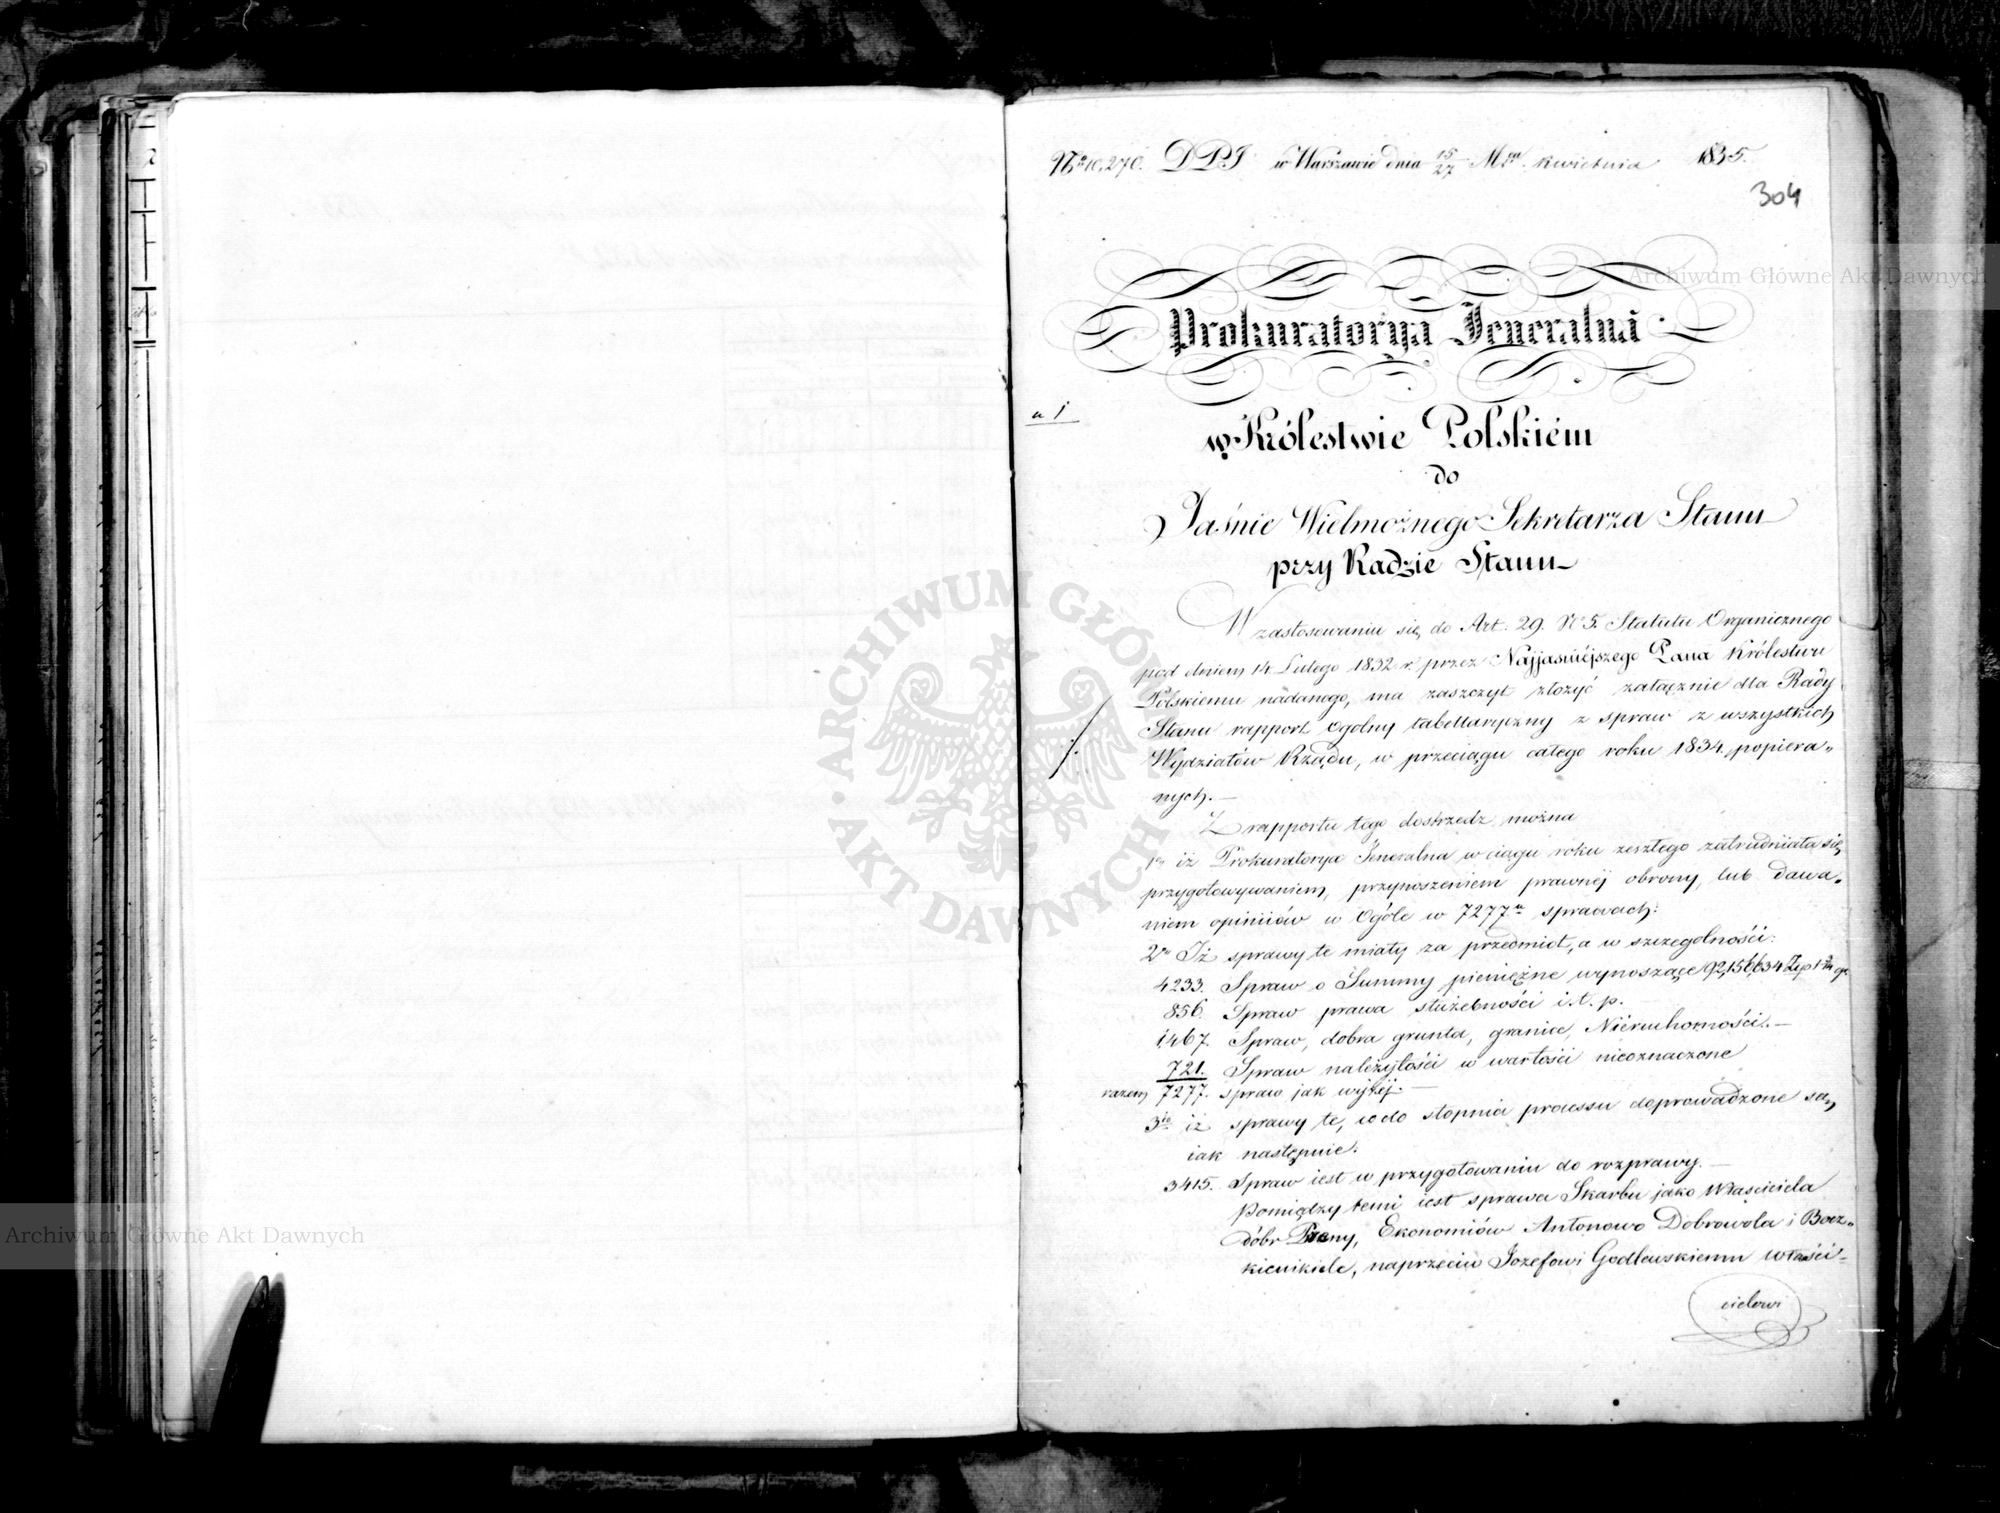 No 10,270. D.P.J. w Warszawie dnia 15/27 Mca kwietnia 1835.
304
Prokuratorya Jeneralna
a 1
w Królestwie Polskiém
do
Jaśnie Wielmożnego Sekretarza Stanu
przy Radzie Stanu
W zastosowaniu się do Art. 29. No 5. Statutu Organicznego
pod dniem 14 Lutego 1832 r. przez Najjaśniéjszego Pana Królestwu
Polskiemu nadanego, ma zaszczyt złożyć załącznie dla Rady
Stanu rapport ogólny tabellaryczny z spraw z wszystkich
Wydziałów Rządu, w przeciągu całego roku 1834 popiera„
nych.—
Z rapportu tego dostrzedz można
1o iż Prokuratorya Jeneralna w ciągu roku zeszłego zatrudniała się
przygotowywaniem, przynoszeniem prawnéj obrony, lub dawa„
niem opiniiów w ogóle w 7277u sprawach:
2do Iż sprawy te miały za przedmiot, a w szczególności:
4233. Spraw o Summy pieniężne wynoszące
856. Spraw prawa służebności i.t.p.—
1,467. Spraw, dobra grunta, granice, Nieruchomości.—
721. Spraw należytości w wartości nieoznaczone
razem 7277. spraw jak wyżéj.—
3tio iż sprawy te, co do stopnia processu doprowadzone są,
iak następnie.
3415. Spraw iest w przygotowaniu do rozprawy.—
Pomiędzy temi iest sprawa Skarbu jako Właściciela
dóbr Preny, Ekonomiów Antonowo Dobrowola i
naprzeciw Jozefowi Godlewskiemu właści-
cielowi
Archiwum Główne Akt Dawnych
Archiwum Główne Akt Dawnych
ARCHIWUM GŁÓWNE
AKT DAWNYCH